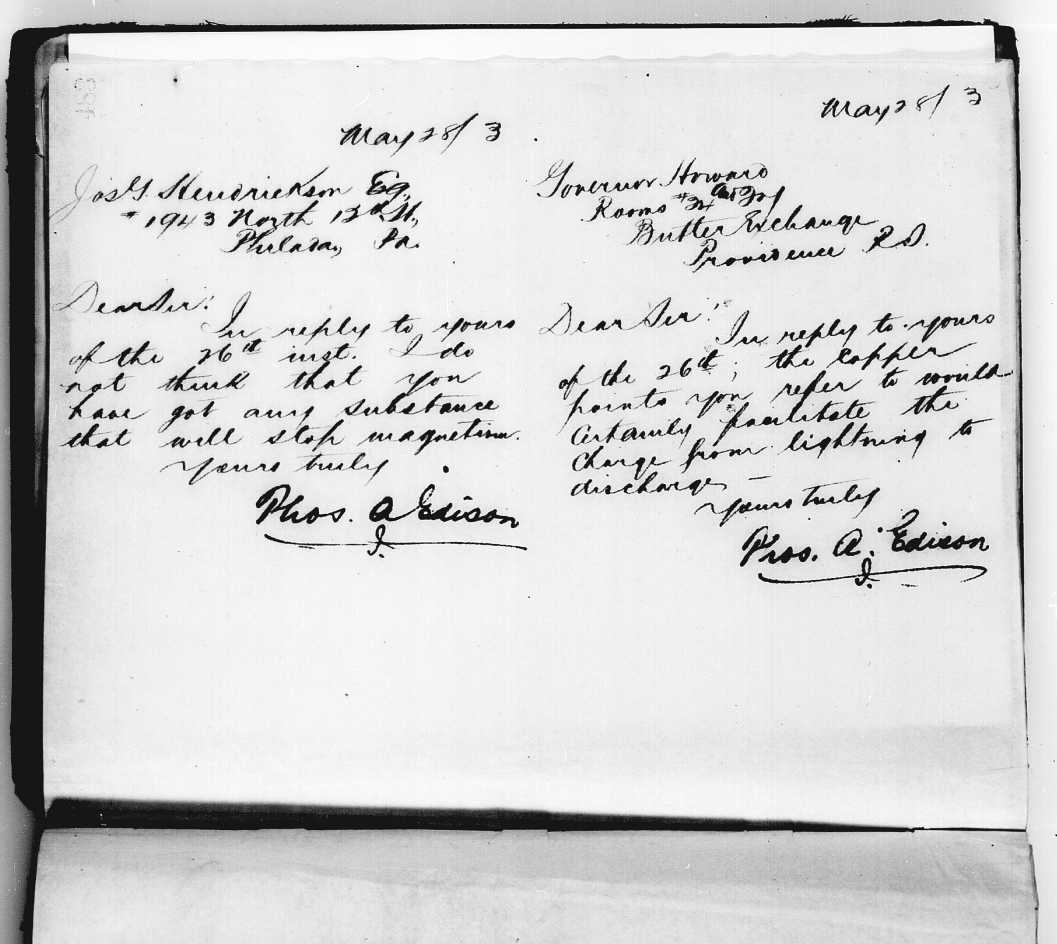 May 28/3
Jos. G. Hendrickson Eq.
1943 North 12th St,
Philada, Pa.
Dear Sir:
In reply to yours
of the 26th inst. I do
not think that you
have got any substance
that will stop magnetism.
Yours truly
Thos. A Edison
I.
May 28/3
Governor Howard
Rooms and
Butler Exchange
Providence R.I.
Dear Sir:
In reply to yours
of the 26th; the copper
points you refer to would
certainly facilitate the
charge from lightning to
discharge —
Yours truly
Thos. A. Edison
I.